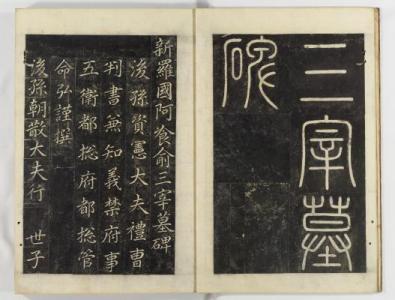 三宰墓
碑
新羅國阿飡俞三宰墓碑
後孫資憲大夫禮曹
判書兼知義禁府事
五衛都摠府都摠管
命弘謹撰
後孫朝散大夫行　世子